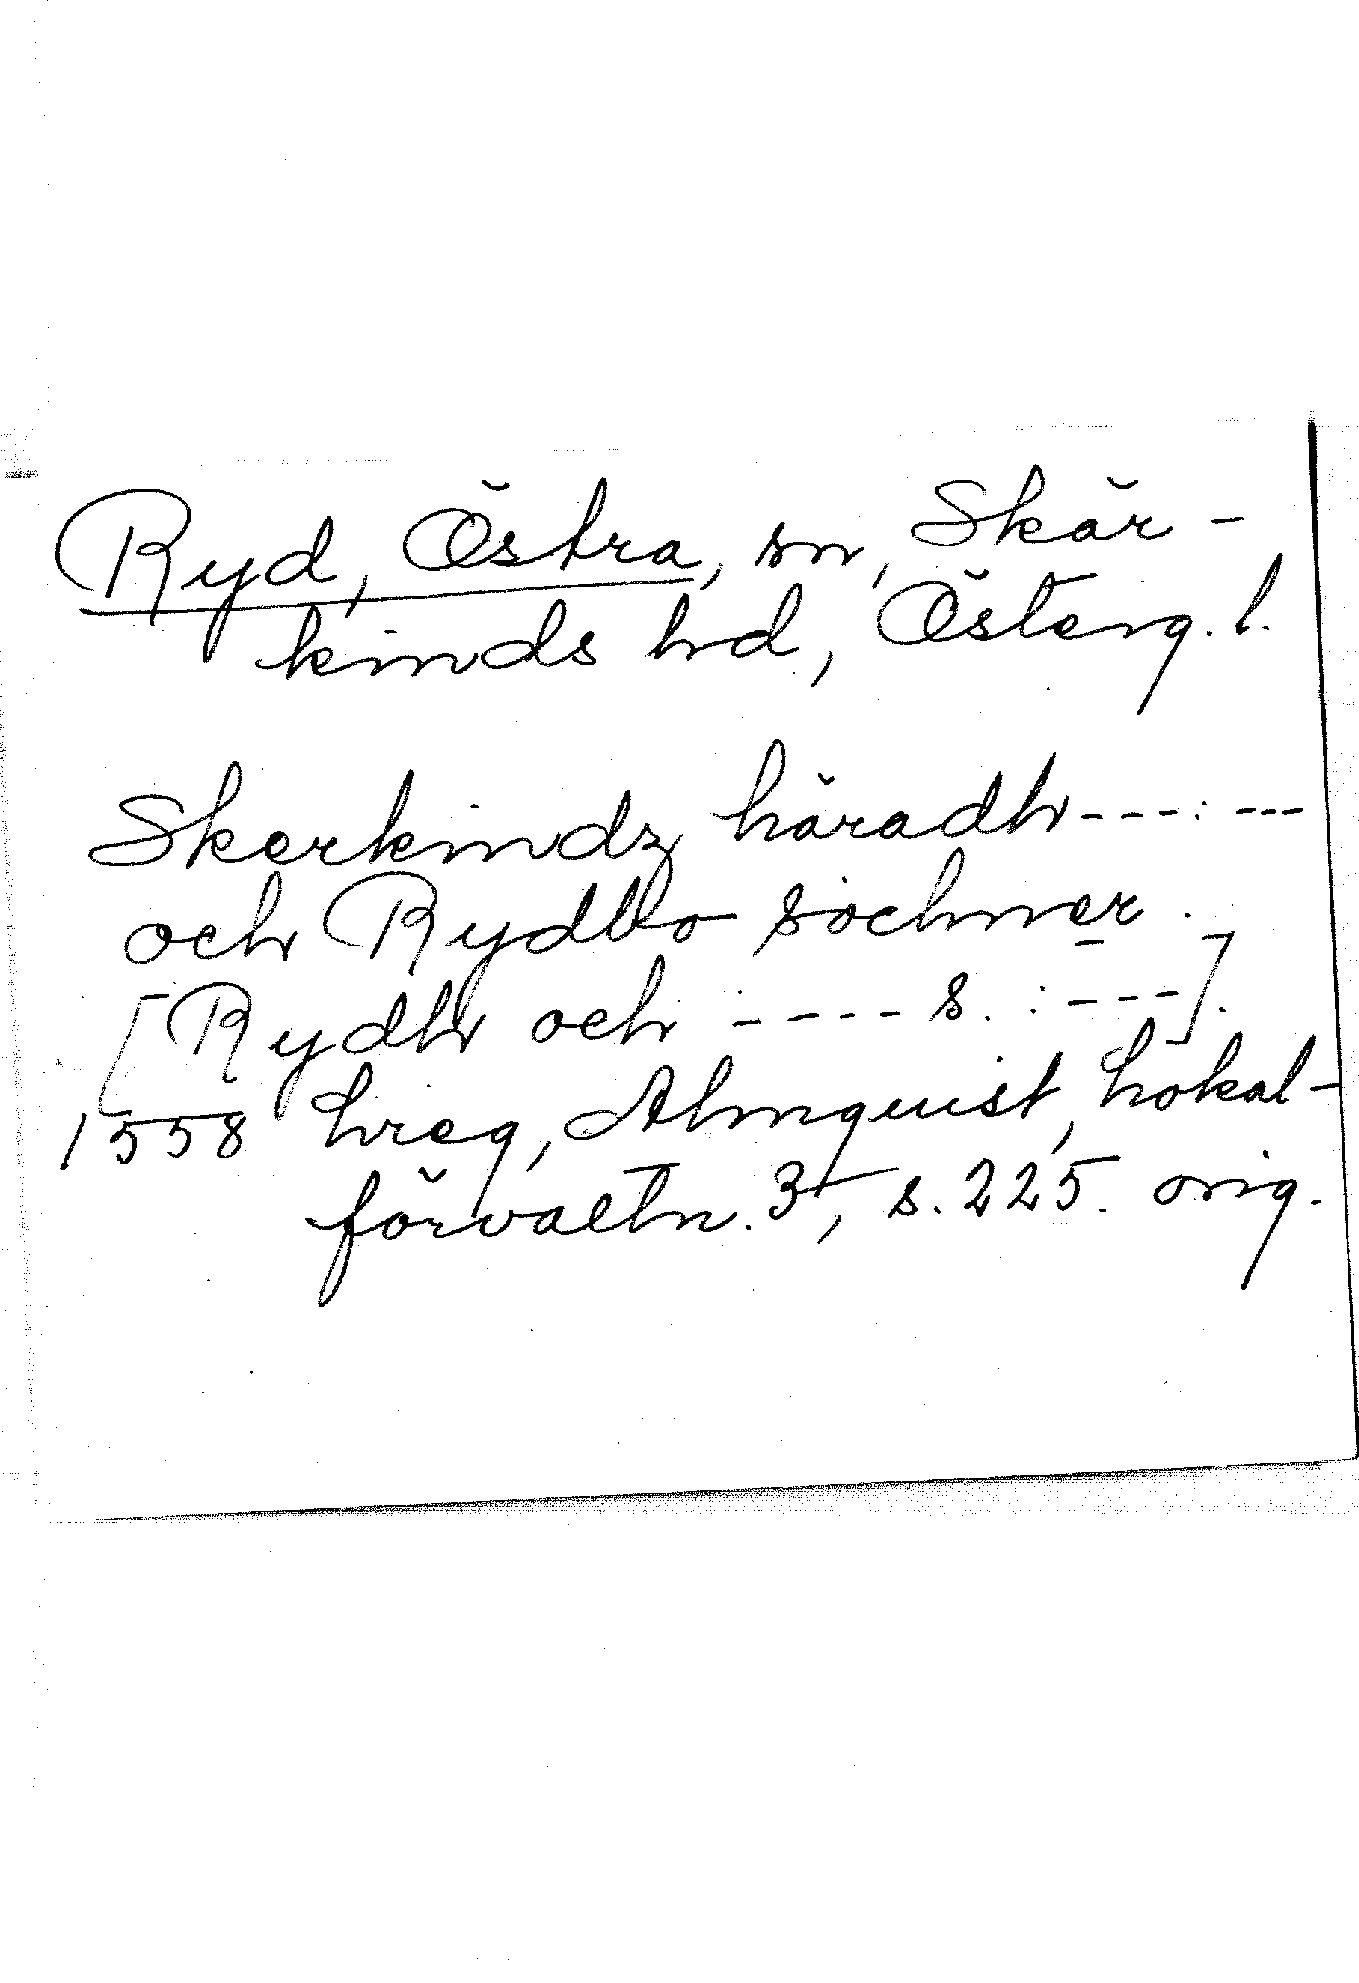 Ryd, Östra, sn, Skär-
kinds hd, Österg. l.
Skerkindz häradh---:---
och Rydbo sochner.
[Rydh och ---- s. : ---].
1558 hreg, Almquist, Lokal-
förvaltn. 3, s. 225. orig.